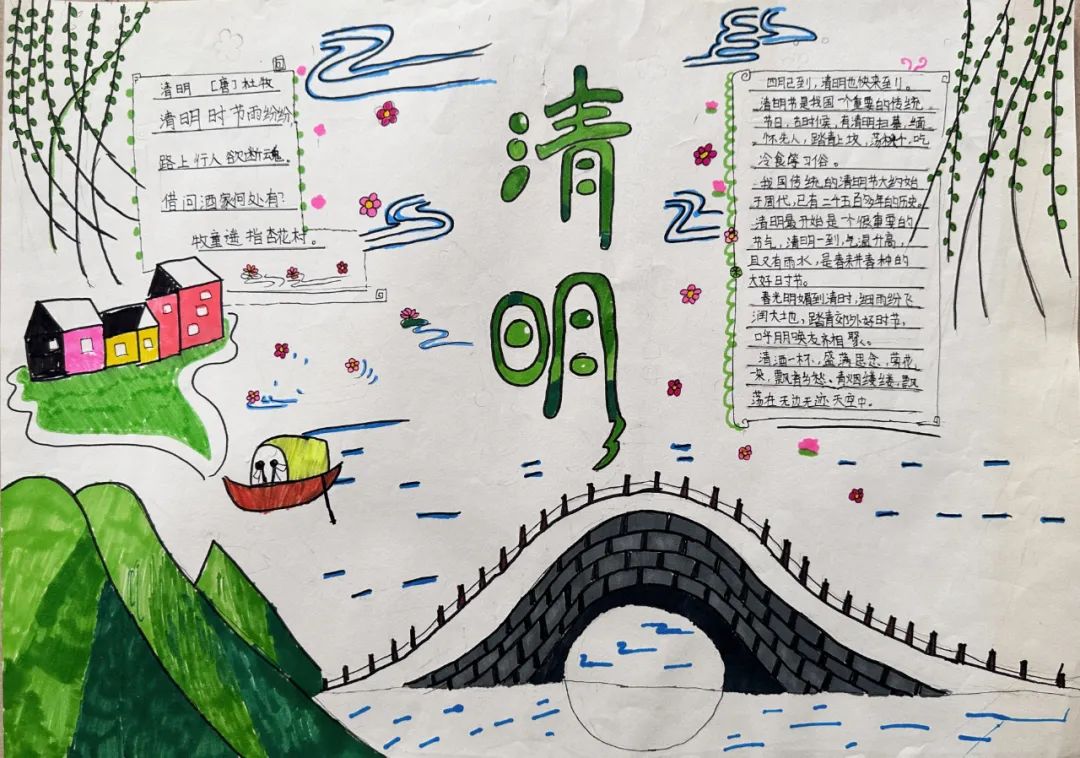 清明 [唐]杜牧
清明时节雨纷纷,
路上行人欲断魂。
借问酒家何处有?
牧童遥指杏花村。
清
明
四月已到,清明也快来到了。
清明节是我国一个重要的传统
节日,古时候,有清明扫墓,缅
怀先人,踏青上坟,荡秋千,吃
冷食等习俗。
我国传统的清明节大约始
于周代,已有二千五百多年的历史。
清明最开始是一个很重要的
节气,清明一到,气温升高,
且又有雨水,是春耕春种的
大好日时节。
春光明媚到清时,细雨纷飞
润大地,踏青郊外好时节,
呼朋唤友齐相聚。
清酒一杯,盛满思念,菊花
朵,飘着乡愁、青烟缕缕,飘
荡在无边无迹天空中。